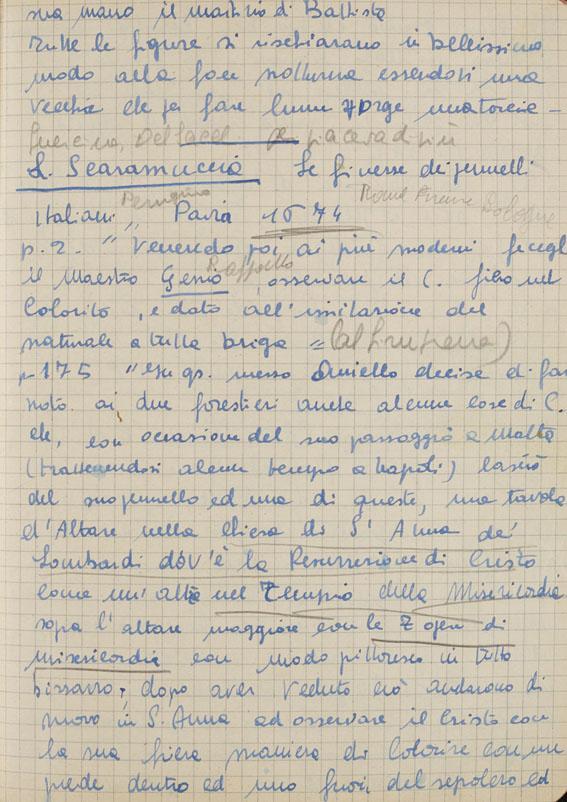 sua mano il martirio di Battista
tutte le figure si rischiarano in bellissimo
modo alla face notturna essendovi una
vecchia che per fare lume porge una torcia –
piaceva di più
L. Scaramuccia Le finezze dei pennelli
Perugino Roma Firenze Bologna
Italiani „ Pavia 1674
p. 2. " Venendo poi ai più moderni fecegli
Raffaello
il Maestro Genio osservare il C. fiero nel
Colorito, e dato all'imitazione del
naturale a tutta briga =
p 175 " messo Aniello decise di far
noto ai due forestieri anche alcune cose di C.
che, con occasione del suo passaggio a Malta
(trattenendosi alcun tempo a Napoli) lasciò
del suo pennello ed una di queste, una tavola
d'Altare nella Chiesa di S' Anna de'
Lombardi dov'è la Resurrezione di Cristo
come un'altra nel Tempio della Misericordia
sopra l'altare maggiore con le 7 opere di
misericordia con modo pittoresco in tutto
bizzarro; dopo aver veduto ciò andarono di
nuovo in S. Anna ad osservare il Cristo con
la sua fiera maniera di Colorire con un
piede dentro ed uno fuori del sepolcro ed